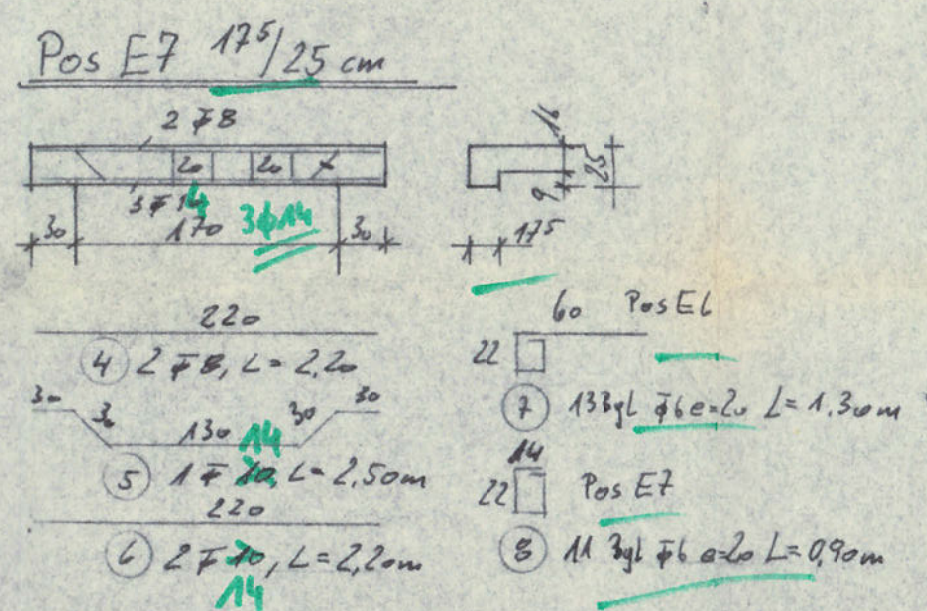 Pos E7 17⁵/25 cm
2 ∅ 8
20 20
3 ∅ 14
3ϕ14
30 170 30
16
25
9
17⁵
220
4 2 ∅ 8, L = 2,20
30 30 130 30 30
14
5 1 ∅ 10, L = 2,50m
220
6 2 ∅ 10, L = 2,20m
14
60 Pos E6
22
7 13 Bgl ∅6 e=20 L = 1.30m
14
22 Pos E7
8 11 Bgl ∅6 e=20 L = 0,90m